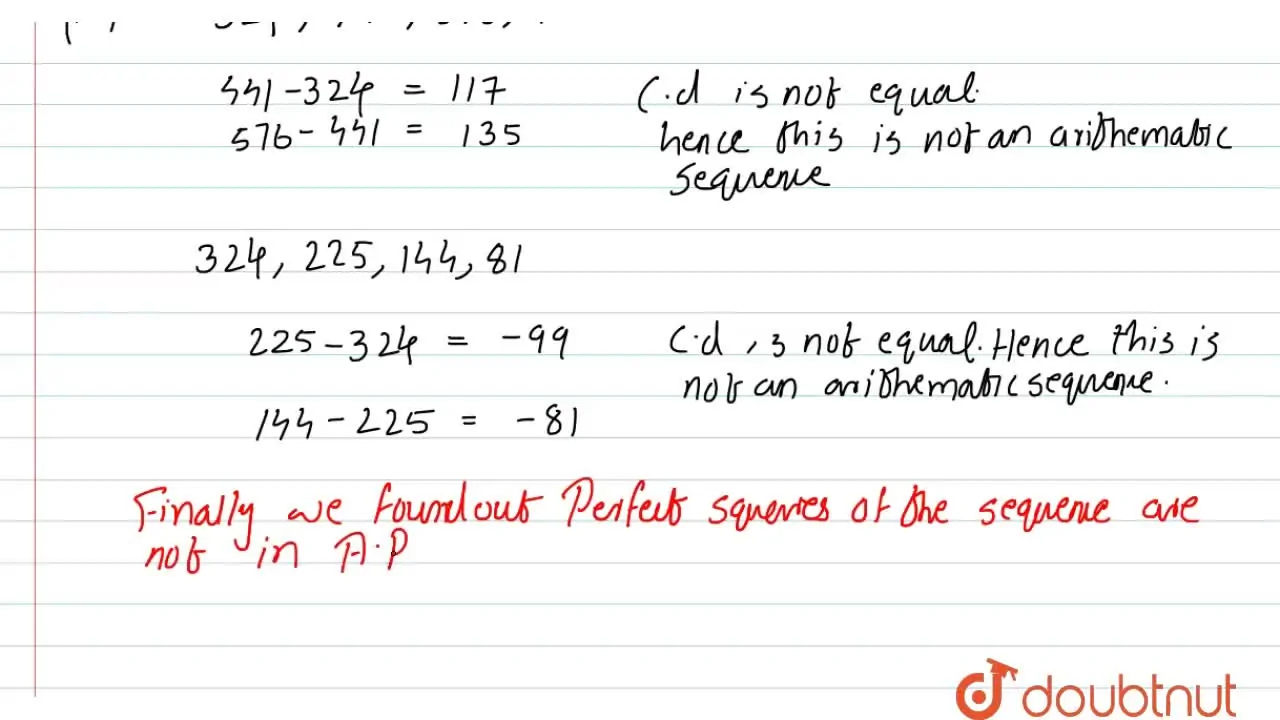 441 - 324 = 117 C.d is not equal.
576 - 441 = 135 hence this is not an arithematic
sequence
324, 225, 144, 81
225 - 324 = -99 C.d is not equal. Hence this is
not an arithematic sequence.
144 - 225 = -81
Finally we found out Perfect squares of the sequence are
not in A.P
doubtnut